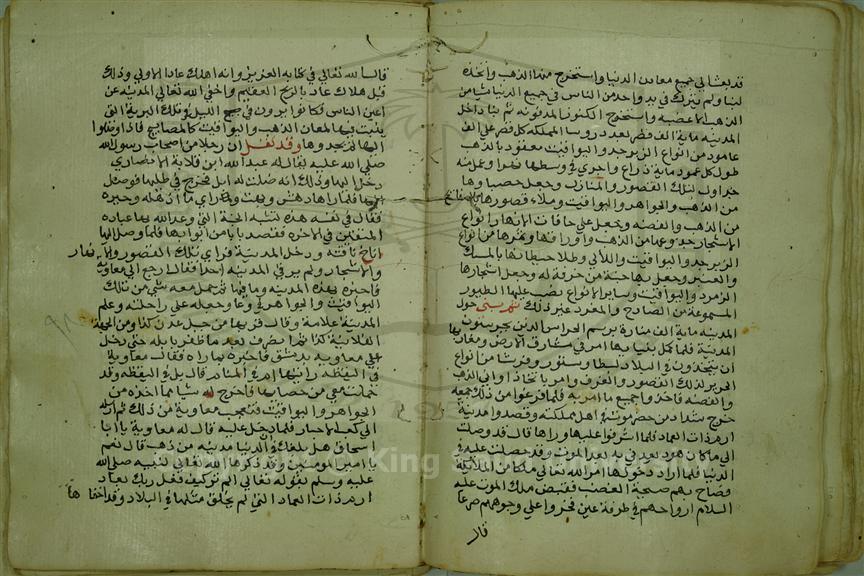 قد بعثا لي جميع معادن الدنيا واستخرج منها الذهب واتخذه
لبنا ولم يترك في يد واحد من الناس في جميع الدنيا شيا من
الذهب الا غصبه واستخرج الكنوز المدفونه ثم بنا داخل
المدينه ماية الف قصر بعدد روسا المملكه كل قصر علي الف
عامود من انواع الزبرجد واليواقيت معقود بالذهب
طول كل عمود ماية ذراع واجري في وسطها نهرا وعمل منه
جداول لتلك القصور والمنازل وجعل حصباوها
من الذهب والجواهر واليواقيت وملا قصورها
من الذهب والفضه وجعل علي حافات انهارها انواع
الاشجار جذوعها من الذهب واوراقها وثمرها من انواع
الزبرجد واليواقيت واللالي وطلا حيطانها بالمسك
والعنبر وجعل بها جنة من خرفة له وجعل اشجارها
الزمرد واليواقيت وساير الانواع نصب عليها الطيور
المسموعة من الصادح والمغرد وغير ذلك ثم بني حول
المدينه ماية الف منارة برسم الحراس الذين يحرسون
المدينة فلما كمل بنيانها امر في مشارق الارض ومغاربها
ان يتخذون في البلاد بسطا وستور وفرشا من انواع
الحرير لذلك القصور والغرف وامر باتخاذ اواني الذهب
والفضه فاخذوا جميع ما امر به فلما فرغوا من ذلك جمعه
خرج شداد من حضرموت في اهل مملكته وقصدوا مدينة
ارم ذات العماد فلما اشرفوا عليها وراها قال قد وصلت
الي ما كان هود يعدني به بعد الموت وقد حصلت عليه في
الدنيا فلما اراد دخولها امر الله تعالي ملكا من الملايكة
فصاح بهم صيحة الغضب فقبض ملك الموت عليه
السلام ارواحهم في طرفة عين فخروا علي وجوههم صرعا
قال
قال الله تعالي في كتابه العزيز وانه اهلك عادا الاولي وذلك
قبل هلاك عاد بالريح العقيم واخفي الله تعالي المدينه عن
اعين الناس فكانوا يرون في جنح الليل بتلك البرية التي
بنيت فيها لمعان الذهب واليواقيت كالمصابيح فاذا وصلوا
اليها لم يجدوها وقد نقل ان رجلا من اصحاب رسول الله
صلي الله عليه يقال له عبد الله ابن قلابة الانصاري
دخل اليها وذلك انه ضلت له ابل فخرج في طلبها فوصل
اليها فلما راها دهش وبهت وراي ما اذهله وحيره
فقال في نفسه هذه تشبه الجنة التي وعد الله بها عباده
المتقين في الاخره فقصد بابا من ابوابها فلما وصل اليها
اناخ ناقته ودخل المدينة فراي تلك القصور والانهار
والاشجار ولم ير في المدينه احدا فقال ارجع الي معاوية
فاخبره بهذه المدينه وما فيها ثم حمل معه شي من تلك
اليواقيت والجواهر في وعا وجعله علي راحلته وعلم
المدينة علامة وقال قربها من جبل عدن كذا ومن الجهة
الفلانية كذا ثم انصرف بعد ما ظفر بابله حتي دخل
علي معاوية بدمشق فاخبره بما راه فقال معاوية
في اليقظه رايتها ام في المنام قال بل في اليقظه وقد
حملت معي من حصبايها فاخرج له شيا مما اخذه من
الجواهر واليواقيت فتعجب معاوية من ذلك ثم ارسل
الي كعب الاحبار فلما دخل عليه قال له معاوية يا ابا
اسحاق هل بلغك في الدنيا مدينه من ذهب قال نعم
يا امير المومنين وقد ذكرها الله تعالي لنبيه صلي الله
عليه وسلم بقوله تعالي الم تر كيف فعل ربك بعاد
ارم ذات العماد التي لم يخلق مثلها في البلاد وقد اخفاها